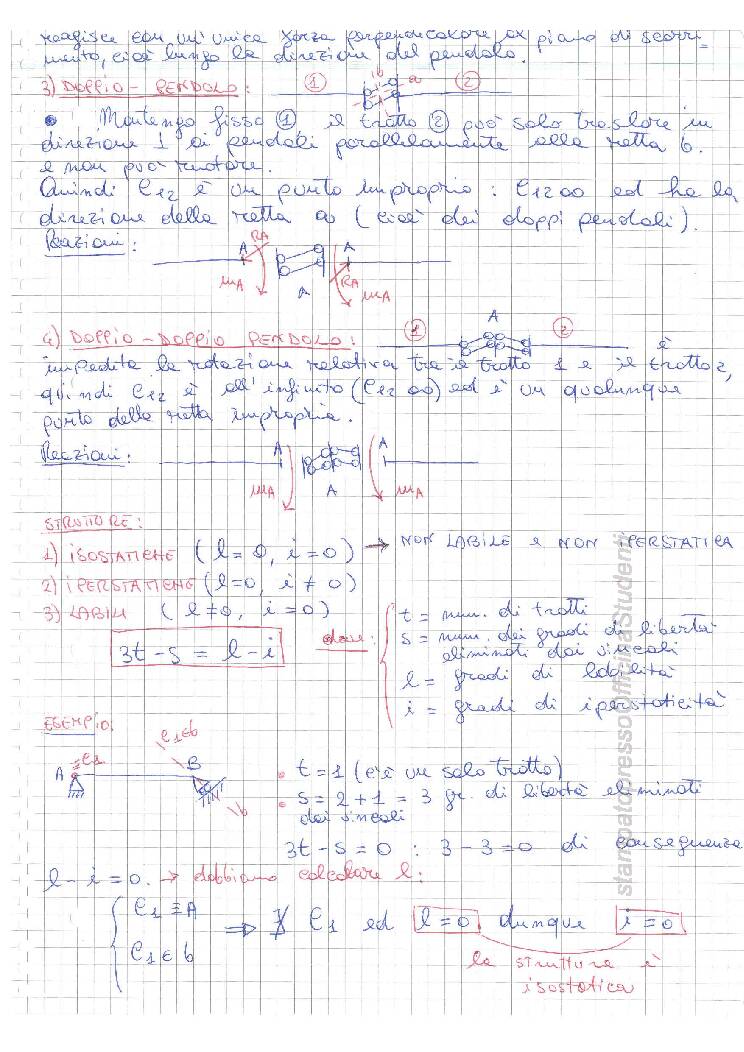 reagisce con un'unica forza perpendicolare al piano di scorri-
mento, cioè lungo la direzione del pendolo.
3) DOPPIO - PENDOLO: 1 b a 2
• Mantengo fisso 1 il tratto 2 può solo traslare in
direzione ⊥ ai pendoli parallelamente alla retta b.
e non può ruotare.
Quindi C12 è un punto improprio: C12∞ ed ha la
direzione della retta a (cioè dei doppi pendoli).
Reazioni: A RA A
MA A RA MA
A
4) DOPPIO - DOPPIO PENDOLO: 1 2 è
impedita la rotazione relativa tra il tratto 1 e il tratto 2,
quindi C12 è all'infinito (C12 ∞) ed è un qualunque
punto della retta impropria.
Reazioni: A A
MA A MA
STRUTTURE:
1) ISOSTATICHE (l = 0, i = 0) → NON LABILE e NON IPERSTATICA
2) IPERSTATICHE (l=0, i ≠ 0)
3) LABILI (l≠0, i = 0)
3t - s = l - i
dove:
t = num. di tratti
s = num. dei gradi di libertà
eliminati dai vincoli
l = gradi di labilità
i = gradi di iperstaticità
ESEMPIO:
C1 C1∈b
A B b
• t = 1 (c'è un solo tratto)
• s = 2 + 1 = 3 gr. di libertà eliminati
dai vincoli
3t - s = 0 : 3 - 3 = 0 di conseguenza
l - i = 0. → dobbiamo calcolare l:
C1 ≡ A
C1 ∈ b
⇒ ∄ C1 ed l = 0 dunque i = 0
la struttura è
isostatica
stampatopressoOfficinaStudenti